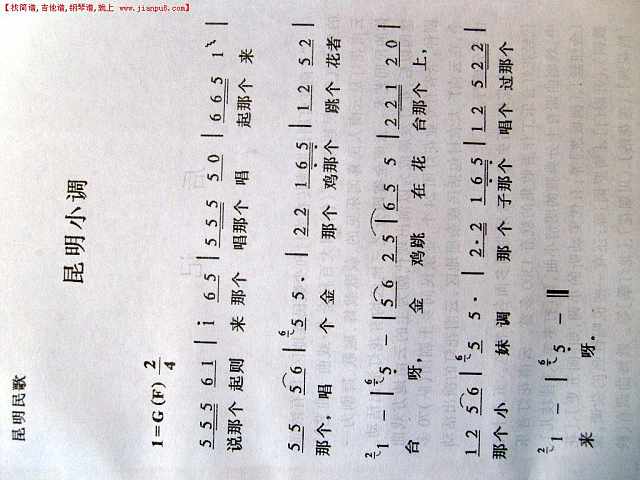 【找简谱,吉他谱,胡琴谱,就上 www.jianpu8.com】
昆明小调
昆明民歌
1=G(F) 2/4
5 5 5 6 1 | i 6 5 | 5 5 5 5 0 | 6 6 5 1
说那个 起则 来 那个 唱那个 唱 起那个 来
5 5 5 6 | 6 5 5 · | 2 2 1 6 5 | 1 2 5 2
那个，唱 个 金 那个 鸡那个 跳个 花者
2 1 － | 6 5 － | 5 6 2 5 | 6 5 5 | 2 2 1 2 0 |
台 呀， 金 鸡跳 在 花 台那个 上，
1 2 5 6 | 6 5 5 · | 2 · 2 1 6 5 | 1 2 5 2 2
那个小 妹 调 那 个 子那个 唱个 过那个
2 1 － | 6 5 － ‖
来 呀。